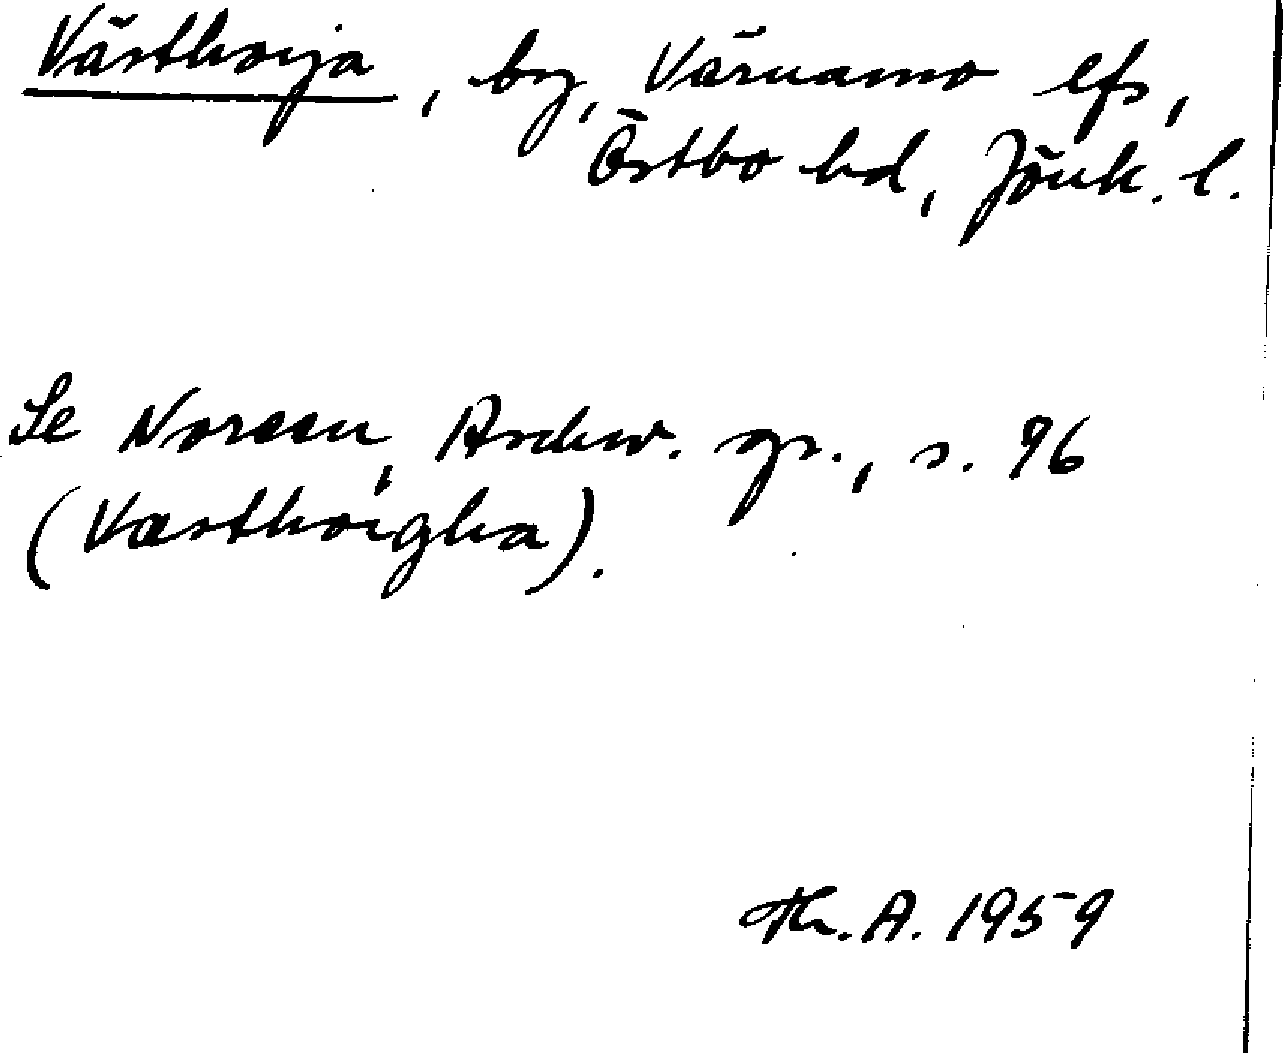 Västhorja, by, Värnamo lfs,
Östbo hd, Jönk. l.
Se Noreen, Aschw. gr., s. 96
(Væsthoigha).
Th. A. 1959